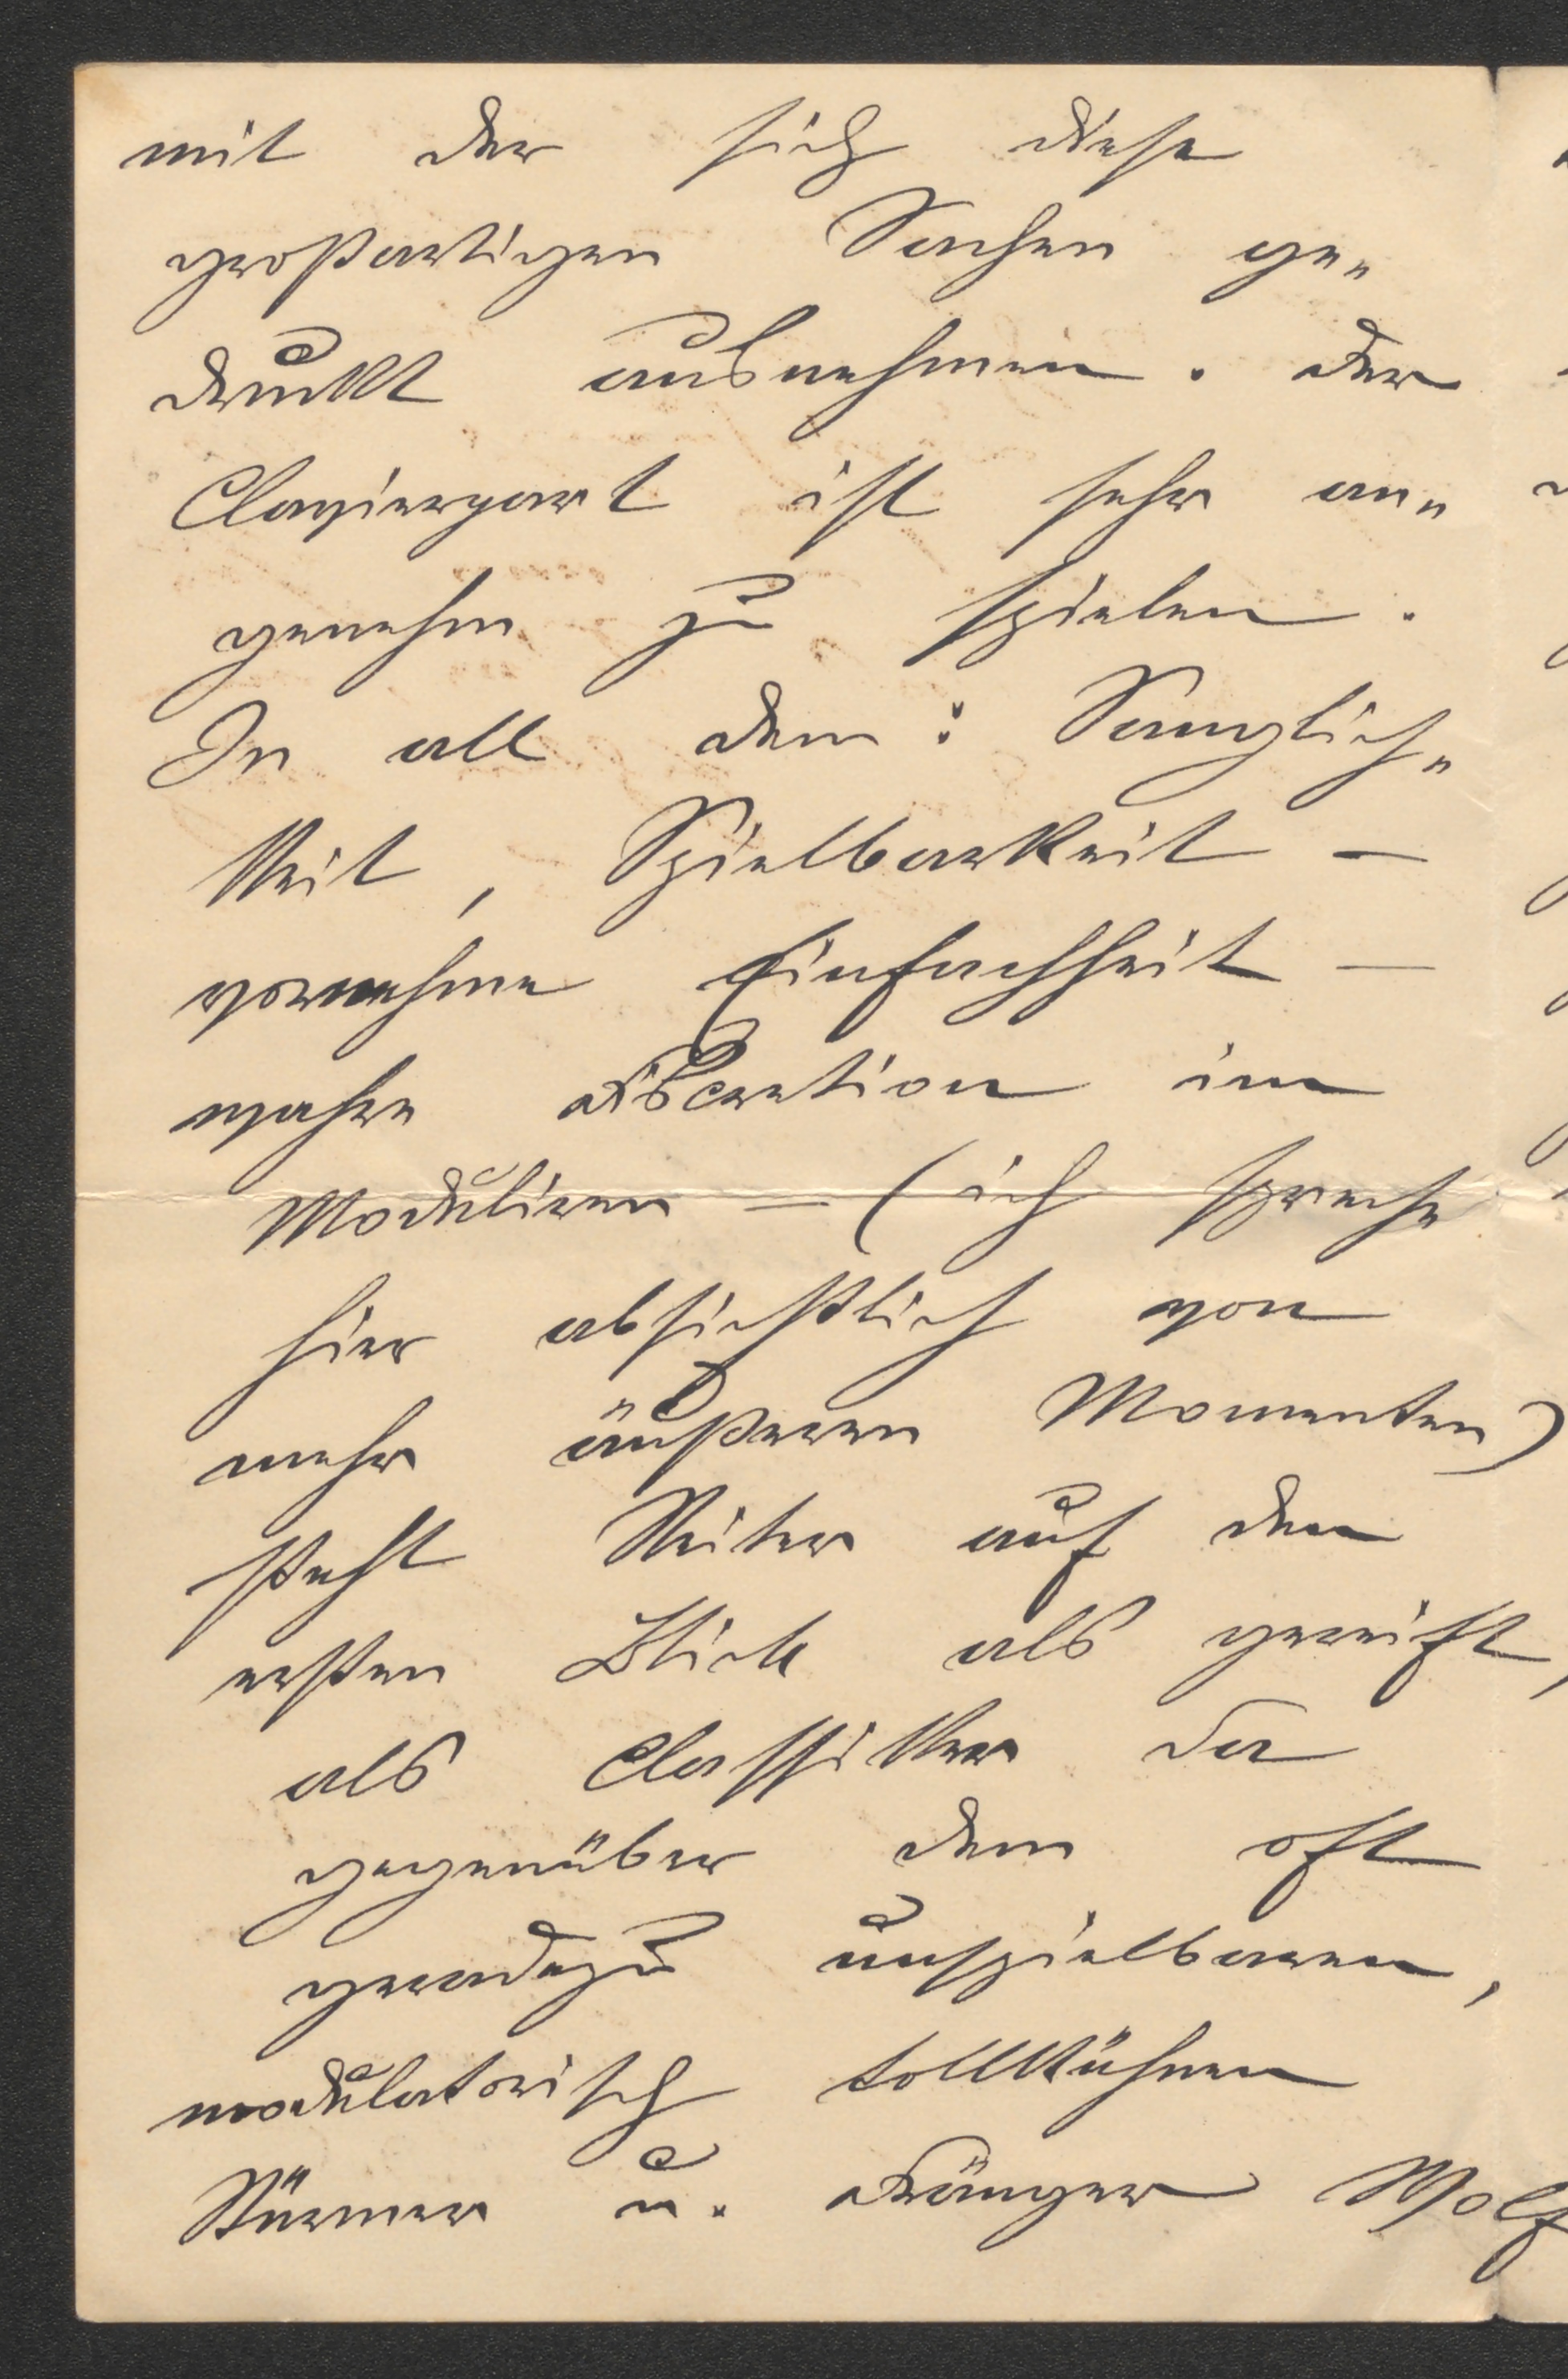 mit der sich diese
großartigen Sachen ge„
druckt ausnehmen. Der
Clavierpart ist sehr an„
genehm zu spielen.
In all dem: Sanglich„
keit, Spielbarkeit –
vornehme Einfachheit –
wahre Discretion im
Moduliren – (ich spreche
hier absichtlich von
mehr äußeren Momenten)
steht Reiter auf den
ersten Blick als gereift,
als Classiker da
gegenüber dem oft
geradezu unspielbaren,
modulatorisch tollkühnen
Stürmer u. Dränger Wolf